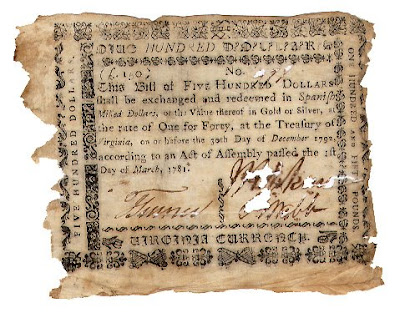 FIVE HUNDRED DOLLARS
(£.150)
No.
This Bill of FIVE HUNDRED DOLLARS
shall be exchanged and redeemed in Spanish
Milled Dollars, or the Value thereof in Gold or Silver, at
the rate of One for Forty, at the Treasury of
Virginia, on or before the 30th Day of December 1792,
according to an Act of Assembly passed the 1st
Day of March, 1781.
Webb
VIRGINIA CURRENCY
FIVE HUNDRED DOLLARS.
ONE HUNDRED AND FIFTY POUNDS.